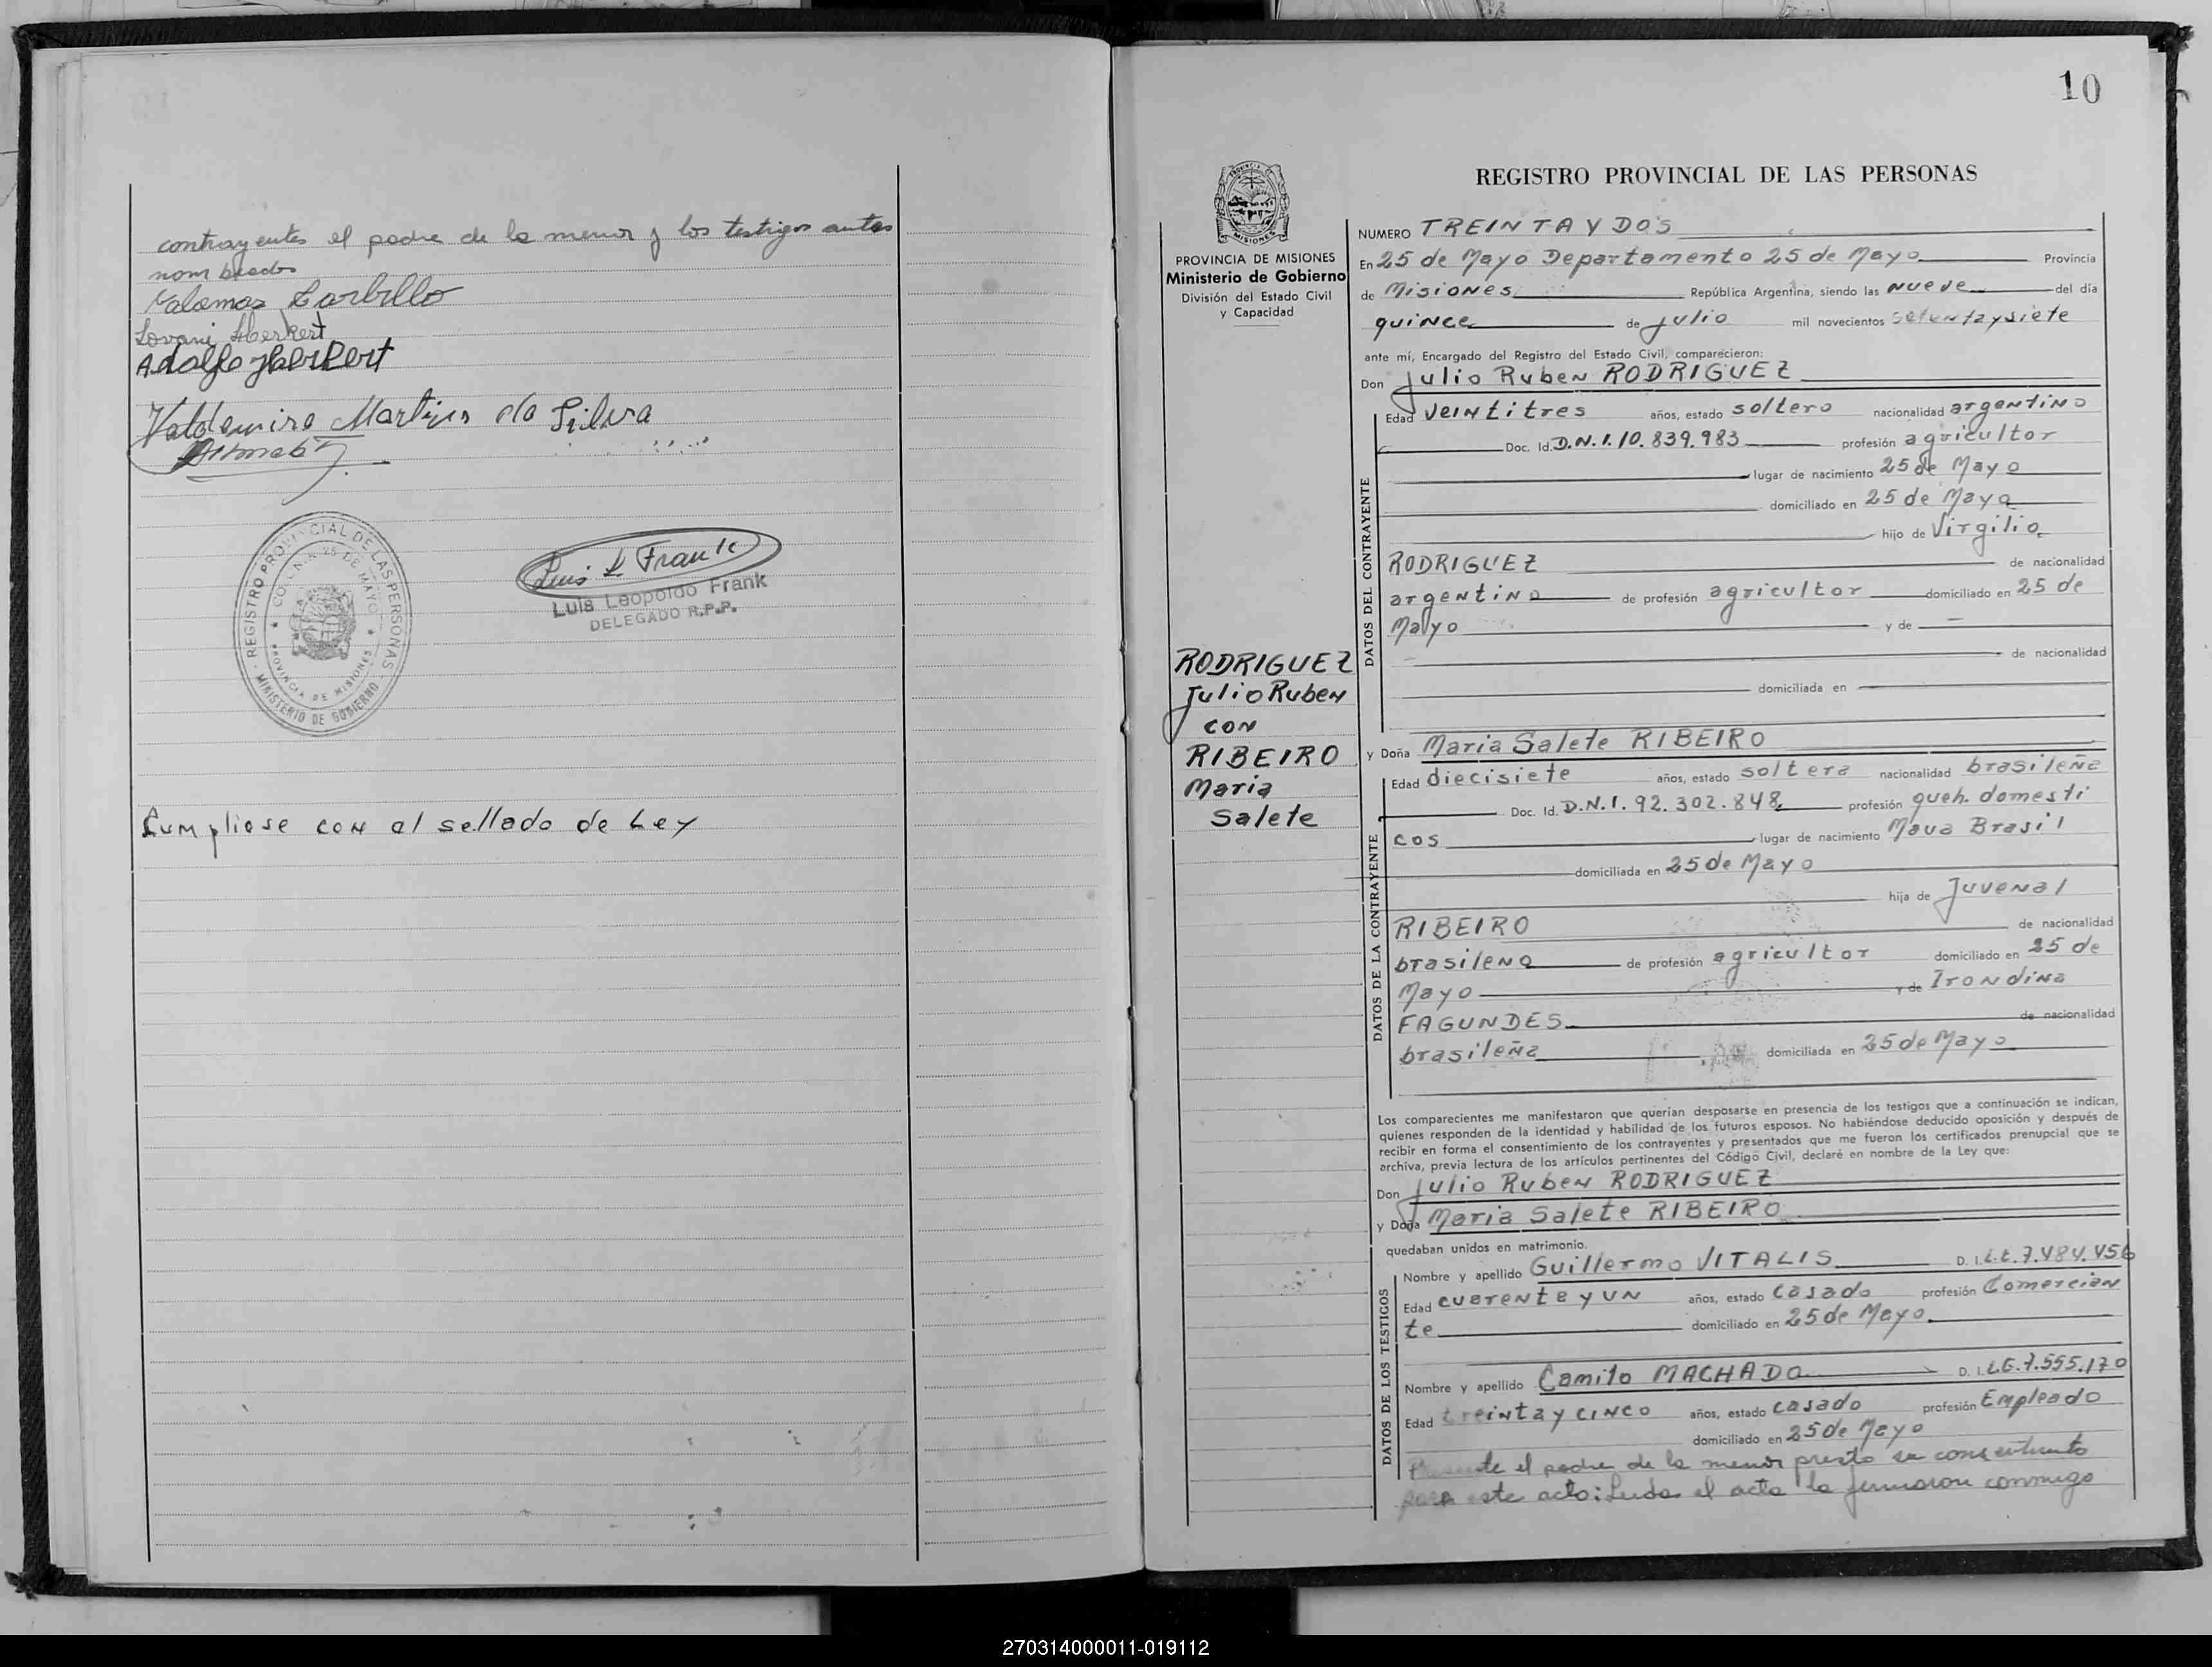 contrayentes el padre de la menor y los testigos antes
nombrados
Lovani Herkert
Adolfo Herkert
Valdemiro Martins da Silva
REGISTRO PROVINCIAL DE LAS PERSONAS
COLONIA 25 DE MAYO
PROVINCIA DE MISIONES
MINISTERIO DE GOBIERNO
Luis L Frank
Luis Leopoldo Frank
DELEGADO R.P.P.
Cumpliose con el sellado de Ley
10
PROVINCIA DE MISIONES
Ministerio de Gobierno
División del Estado Civil
y Capacidad
RODRIGUEZ
Julio Ruben
CON
RIBEIRO
Maria
Salete
REGISTRO PROVINCIAL DE LAS PERSONAS
NUMERO TREINTA Y DOS
En 25 de Mayo Departamento 25 de Mayo Provincia
de Misiones República Argentina, siendo las nueve del día
quince de julio mil novecientos setenta y siete
ante mí, Encargado del Registro del Estado Civil, comparecieron:
Don Julio Ruben RODRIGUEZ
DATOS DEL CONTRAYENTE
Edad veintitres años, estado soltero nacionalidad argentino
Doc. Id. D.N.I. 10.839.983 profesión agricultor
lugar de nacimiento 25 de Mayo
domiciliado en 25 de Mayo
hijo de Virgilio
RODRIGUEZ de nacionalidad
argentino de profesión agricultor domiciliado en 25 de
Mayo y de —
de nacionalidad
domiciliada en
y Doña Maria Salete RIBEIRO
DATOS DE LA CONTRAYENTE
Edad diecisiete años, estado soltera nacionalidad brasileña
Doc. Id. D.N.I. 92.302.848 profesión queh. domesti
cos lugar de nacimiento Maua Brasil
domiciliada en 25 de Mayo
hija de Juvenal
RIBEIRO de nacionalidad
brasileno de profesión agricultor domiciliado en 25 de
Mayo y de Irondina
FAGUNDES de nacionalidad
brasileña domiciliada en 25 de Mayo
Los comparecientes me manifestaron que querían desposarse en presencia de los testigos que a continuación se indican,
quienes responden de la identidad y habilidad de los futuros esposos. No habiéndose deducido oposición y después de
recibir en forma el consentimiento de los contrayentes y presentados que me fueron los certificados prenupcial que se
archiva, previa lectura de los artículos pertinentes del Código Civil, declaré en nombre de la Ley que:
Don Julio Ruben RODRIGUEZ
y Doña Maria Salete RIBEIRO
quedaban unidos en matrimonio.
DATOS DE LOS TESTIGOS
Nombre y apellido Guillermo VITALIS D. I. L.E. 7.484.456
Edad cuarenta y un años, estado casado profesión Comercian
te domiciliado en 25 de Mayo
Nombre y apellido Camilo MACHADO D. I. L.E. 7.555.170
Edad treinta y cinco años, estado casado profesión Empleado
domiciliado en 25 de Mayo
Presente el padre de la menor presto su consentimiento
para este acto: Leida el acta la firmaron conmigo
270314000011-019112